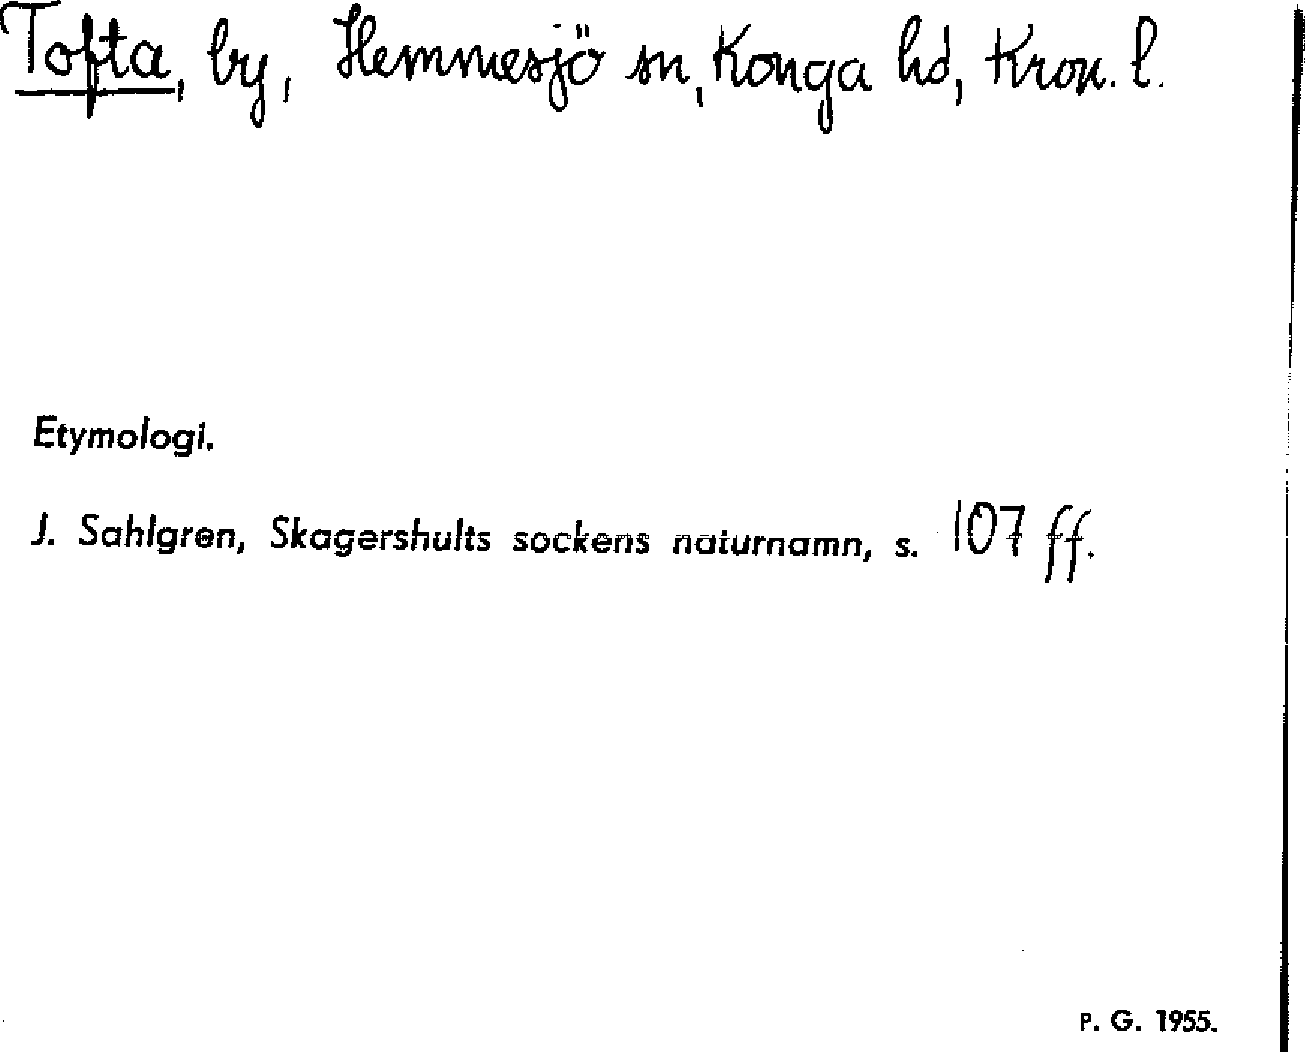 Tofta, by, Hemmesjö sn, Konga hd, Kron. l.
Etymologi.
J. Sahlgren, Skagershults sockens naturnamn, s. 107 ff.
P. G. 1955.